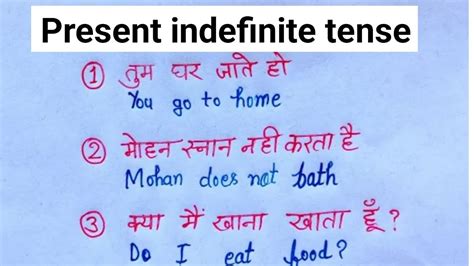 Present indefinite tense
① तुम घर जाते हो
You go to home
② मोहन स्नान नही करता है
Mohan does not bath
③ क्या मैं खाना खाता हूँ ?
Do I eat food?